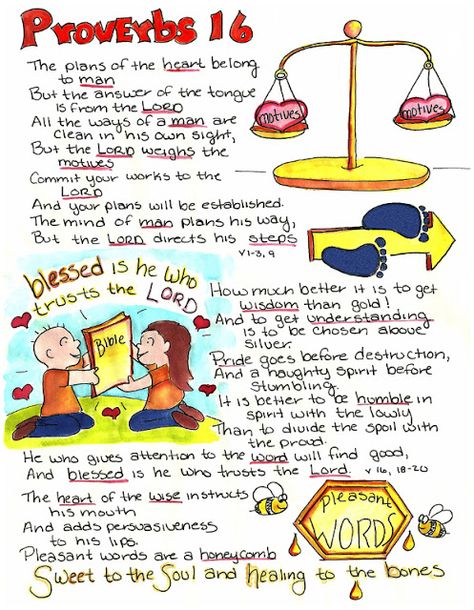 Proverbs 16
The plans of the heart belong
to man
But the answer of the tongue
is from the LORD
All the ways of a man are
clean in his own sight,
But the LORD weighs the
motives
Commit your works to the
LORD
And your plans will be established.
The mind of man plans his way,
But the LORD directs his steps
v1-3, 9
motives
motives
blessed is he who
trusts the LORD
Bible
How much better it is to get
wisdom than gold!
And to get understanding
is to be chosen above
silver.
Pride goes before destruction,
And a haughty spirit before
stumbling.
It is better to be humble in
spirit with the lowly
Than to divide the spoil with
the proud.
He who gives attention to the word will find good,
And blessed is he who trusts the Lord. v 16, 18-20
The heart of the wise instructs
his mouth
And adds persuasiveness
to his lips.
Pleasant words are a honeycomb
Sweet to the Soul and Healing to the bones
pleasant
WORDS